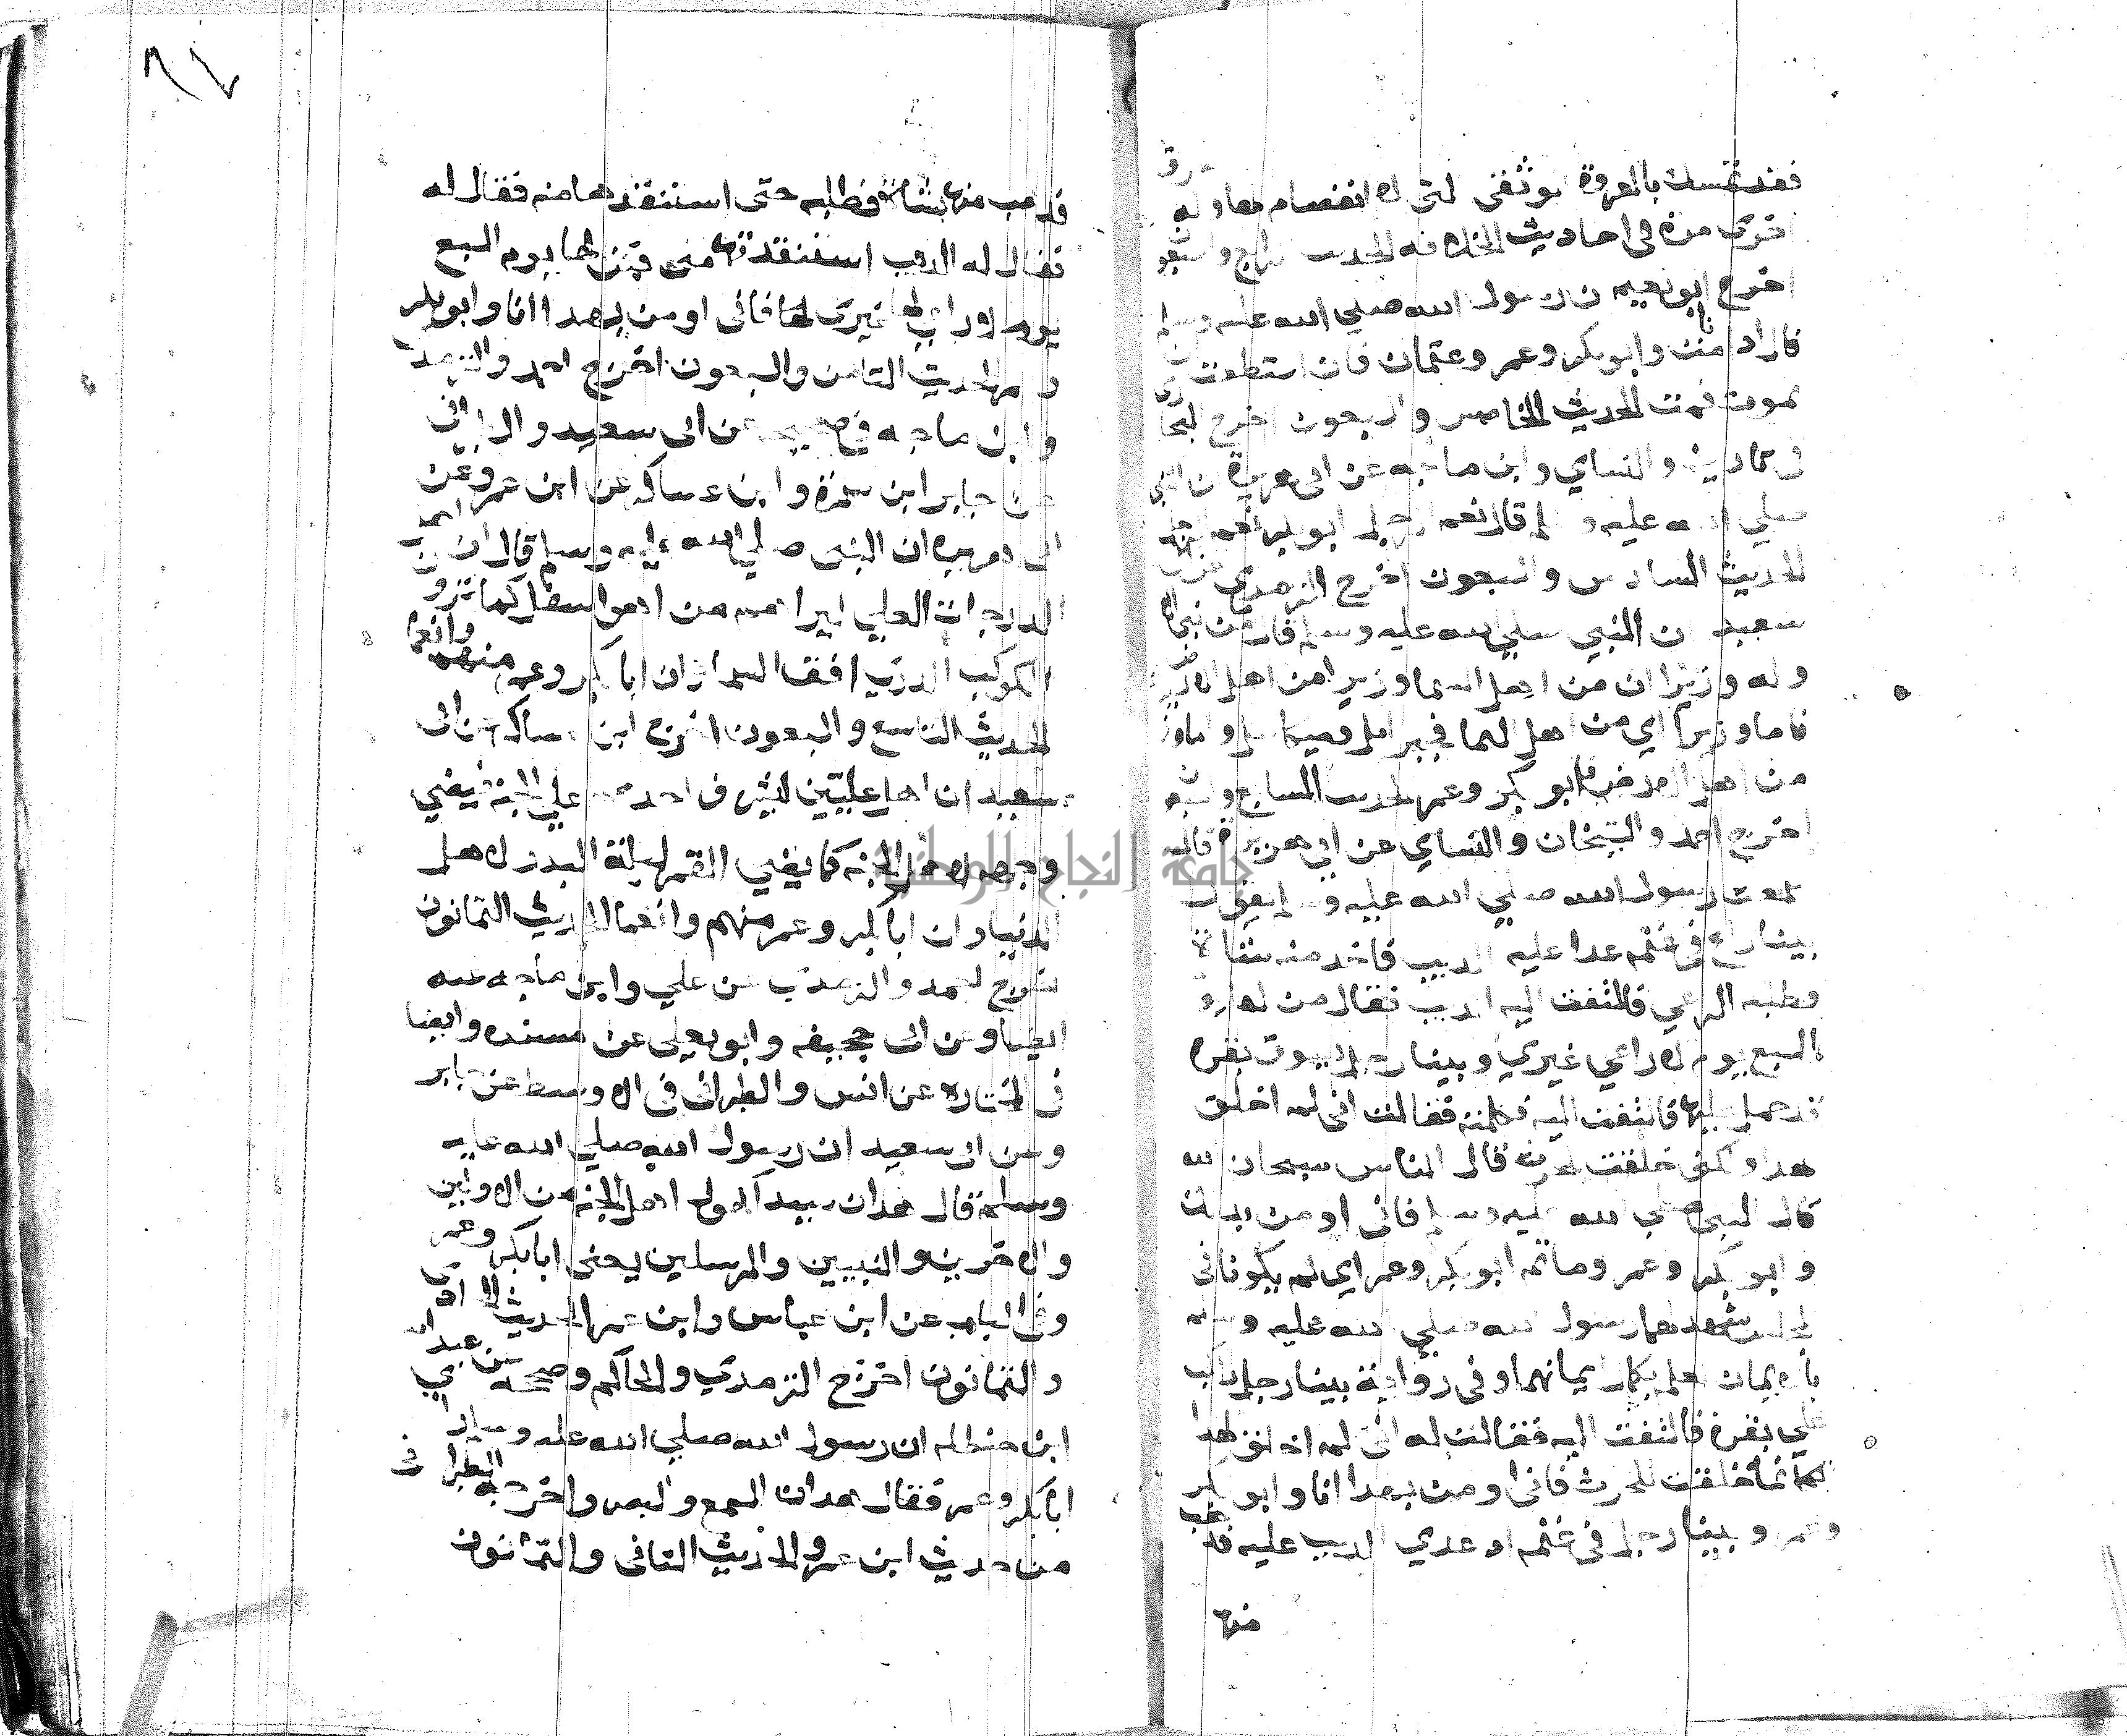 فقد تمسك بالعروة الوثقى التى لا انفصام لها وله طرق
اخرى مرة فى احاديث الخلافه الحديث الرابع والسبعون
اخرج ابو نعيم ان رسول الله صلي الله عليه وسلم
قال اذا انامت وابو بكر وعمر وعثمان فان استطعت ان
تموت فمت الحديث الخامس والسبعون اخرج البخارى
فى تاريخه والنساي وابن ماجه عن ابى هريرة ان النبي
صلي الله عليه وسلم قال نعم الرجل ابو بكر نعم الرجل عمر
الحديث السادس والسبعون اخرج الترمدي عن ابى
سعيد ان النبي صلي الله عليه وسلم قال ما من نبي الا
وله وزيران من اهل السما وزيران من اهل الارض
فاما وزيراي من اهل السما فجبرايل وميكايل واما وزيراى
من اهل الارض فابو بكر وعمر الحديث السابع والسبعون
اخرج احمد والشيخان والنساي عن ابي هريرة قال
سمعت رسول الله صلي الله عليه وسلم يقول
بينا راع فى غنمه عدا عليه الديب فاخد منه شاة
فطلبه الراعي فالتفت اليه الديب فقال من لها يوم
السبع يوم لا راعي غيري وبينا رجل يسوق بقره
قد حمل عليها فالتفت اليه فكلمته فقالت انى لم اخلق
لهدا ولكنى خلقت للحرث قال الناس سبحان الله
قال النبى صلي الله عليه وسلم فانى اومن بدلك
وابو بكر وعمر وما ثم ابو بكر وعمر اي لم يكونا فى
المجلس شهد لهما رسول الله صلي الله عليه وسلم
بالايمان لعلمه بكمال ايمانهما وفى رواية بينا رجل راكب
علي بقرة فالتفت اليه فقالت له انى لم اخلق لهدا
انما خلقت للحرث فانى اومن بهدا انا وابو بكر
وعمر وبينا رجل فى غنمه اد عدي الديب عليه فدهب
منها
٦٤
فدهب منها بشاة فطلبه حتى استنقدها منه فقال له
فقال له الديب استنقدتها منى فمن لها يوم السبع
يوم لا راعي لها غيرى فانى اومن بهدا انا وابو بكر
وعمر الحديث الثامن والسبعون اخرج احمد والترمدى
وابن ماجه فى صحيحه عن ابى سعيد والطبرانى
عن جابر ابن سمرة وابن عساكر عن ابن عمر وعن
ابى هريره ان النبى صلي الله عليه وسلم قال ان اهل
الدرجات العلي ليراهم من هو اسفل كما ترون
الكوكب الدرى افق السما وان ابا بكر وعمر منهم وانعما
الحديث التاسع والسبعون اخرج ابن عساكر عن ابى
سعيد ان اهل عليين ليشرف احدهم على الجنة فيضي
وجهه لاهل الجنه كما يضي القمر ليلة البدر لاهل
الدنيا وان ابا بكر وعمر منهم وانعما الحديث الثمانون
اخرج احمد والترمدى عن علي وابن ماجه عنه
ايضا وعن ابى جحيفه وابو يعلى عن مسنده وايضا
فى المختاره عن انس والطبرانى فى الاوسط عن جابر
وعن ابى سعيد ان رسول الله صلي الله عليه
وسلم قال هدان سيدا كهول اهل الجنه من الاولين
والاخرين والنبيين والمرسلين يعنى ابا بكر وعمر
وفى الباب عن ابن عباس وابن عمر الحديث الحادى
والثمانون اخرج الترمدي والحاكم وصححه عن عبد الله
ابن حنطله ان رسول الله صلي الله عليه وسلم راي
ابا بكر وعمر فقال هدان السمع والبصر واخرجه الطبرانى
من حديث ابن عمر والحديث الثانى والثمانون